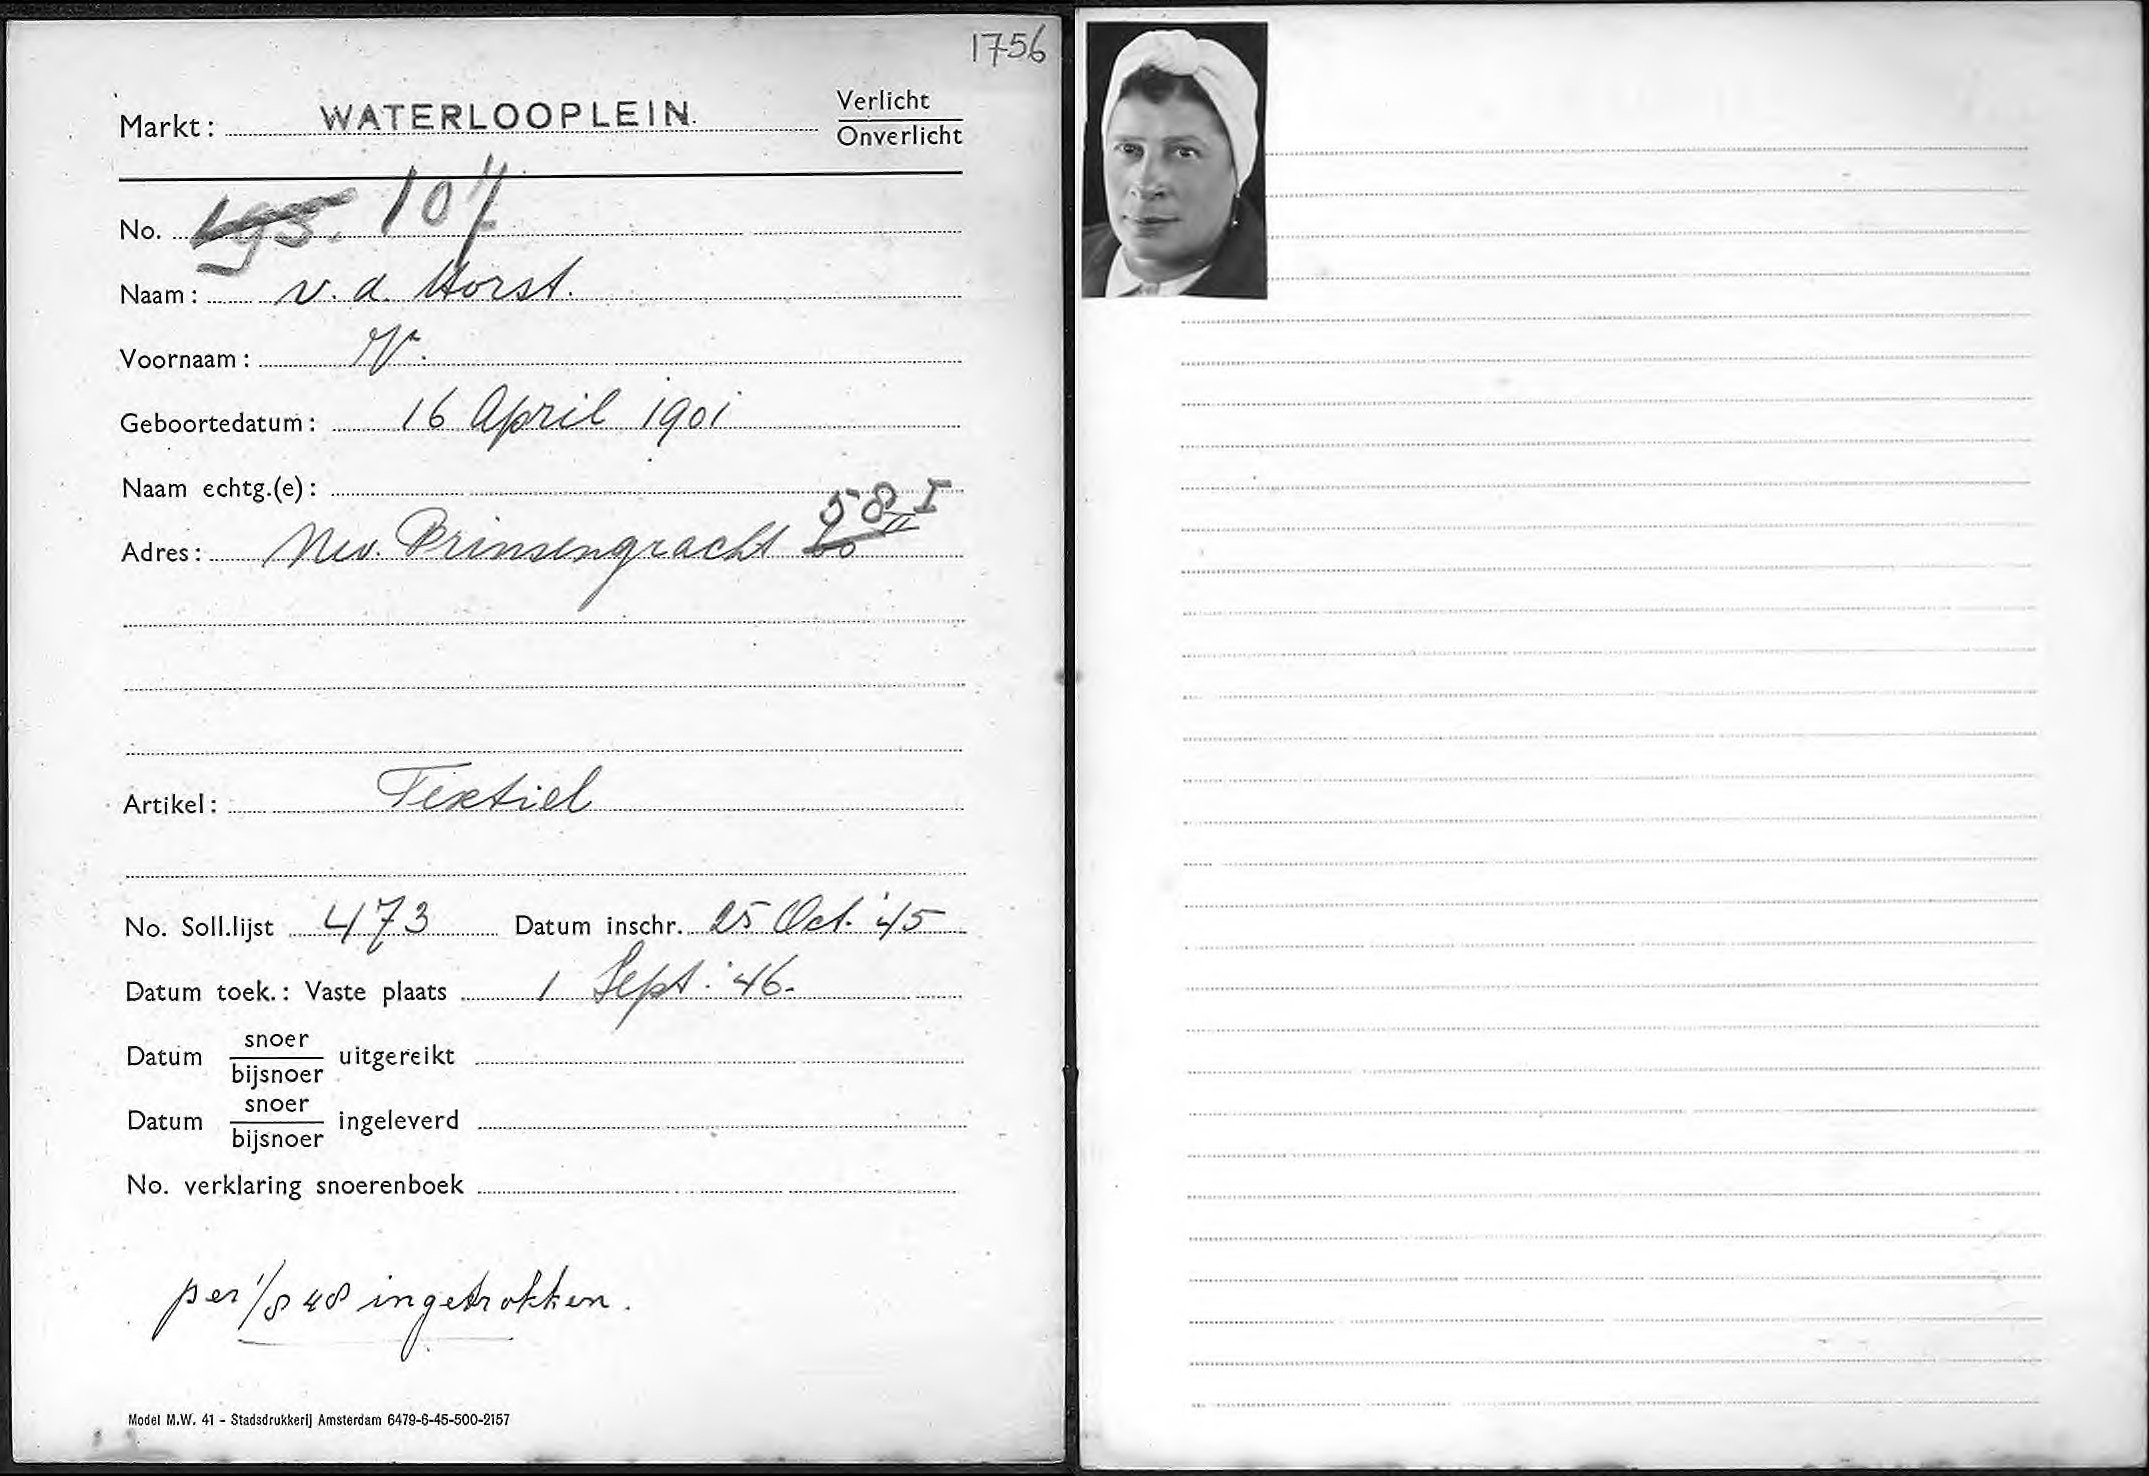 1756
Markt: WATERLOOPLEIN. Verlicht
Onverlicht
No. 107
Naam: v. d. Horst.
Voornaam:
Geboortedatum: 16 April 1901
Naam echtg.(e):
58 I
Adres: Nw. Prinsengracht 60 II
Artikel: Textiel
No. Soll.lijst 473 Datum inschr. 25 Oct. '45
Datum toek.: Vaste plaats 1 Sept. '46.
Datum snoer/bijsnoer uitgereikt
Datum snoer/bijsnoer ingeleverd
No. verklaring snoerenboek
per 1/8 48 ingetrokken.
Model M.W. 41 - Stadsdrukkerij Amsterdam 6479-6-45-500-2157